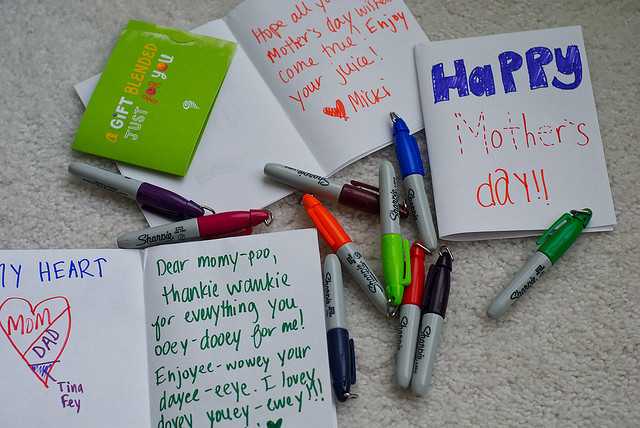 Hope all yo
Mother's day wishes
come true! Enjoy
your juice!
Micki
a GIFT BLENDED
JUST FOR YOU
HAPPY
Mother's
day!!
MY HEART
MOM
DAD
Tina
Fey
Dear momy-poo,
thankie wankie
for everything you
ooey-dooey for me!
Enjoyee-wowey your
dayee-eeye. I lovey
dovey youey-ewey!!!
Sharpie
Sharpie
Sharpie
Sharpie
Sharpie
Sharpie
Sharpie
Sharpie
Sharpie